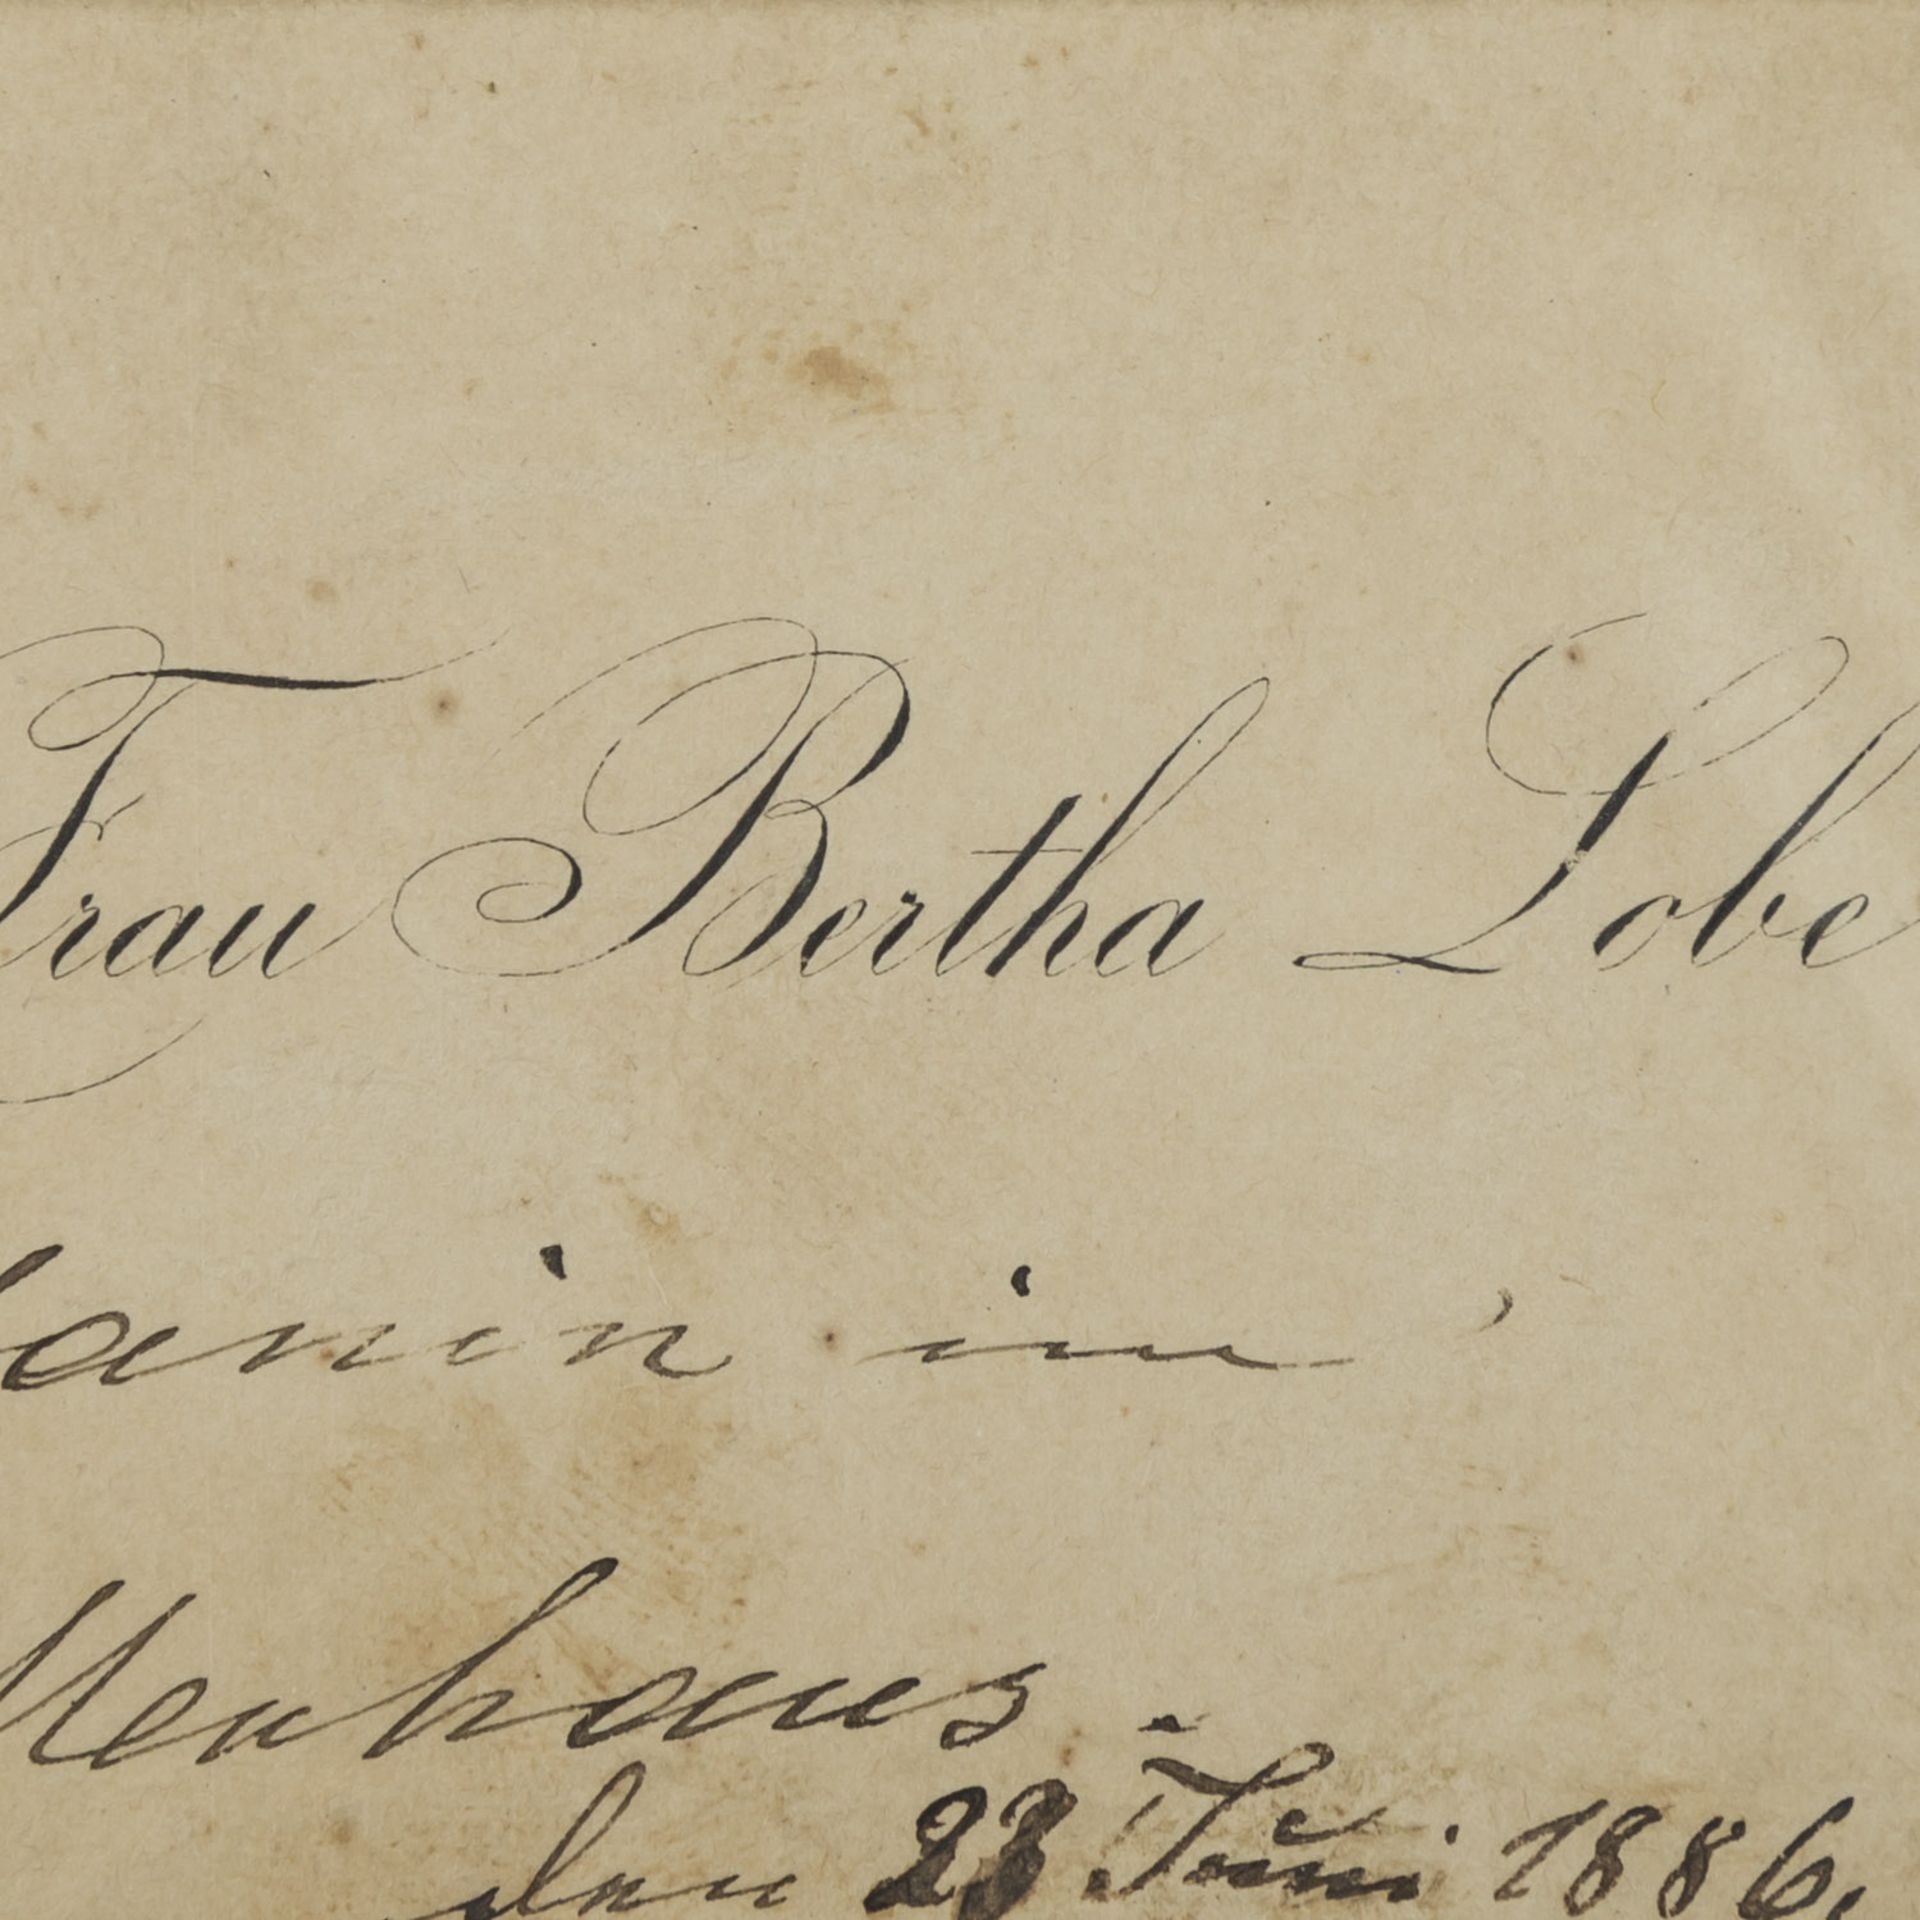 Frau Bertha Lobe
in
Neuhaus.
den 23 Juni 1886.